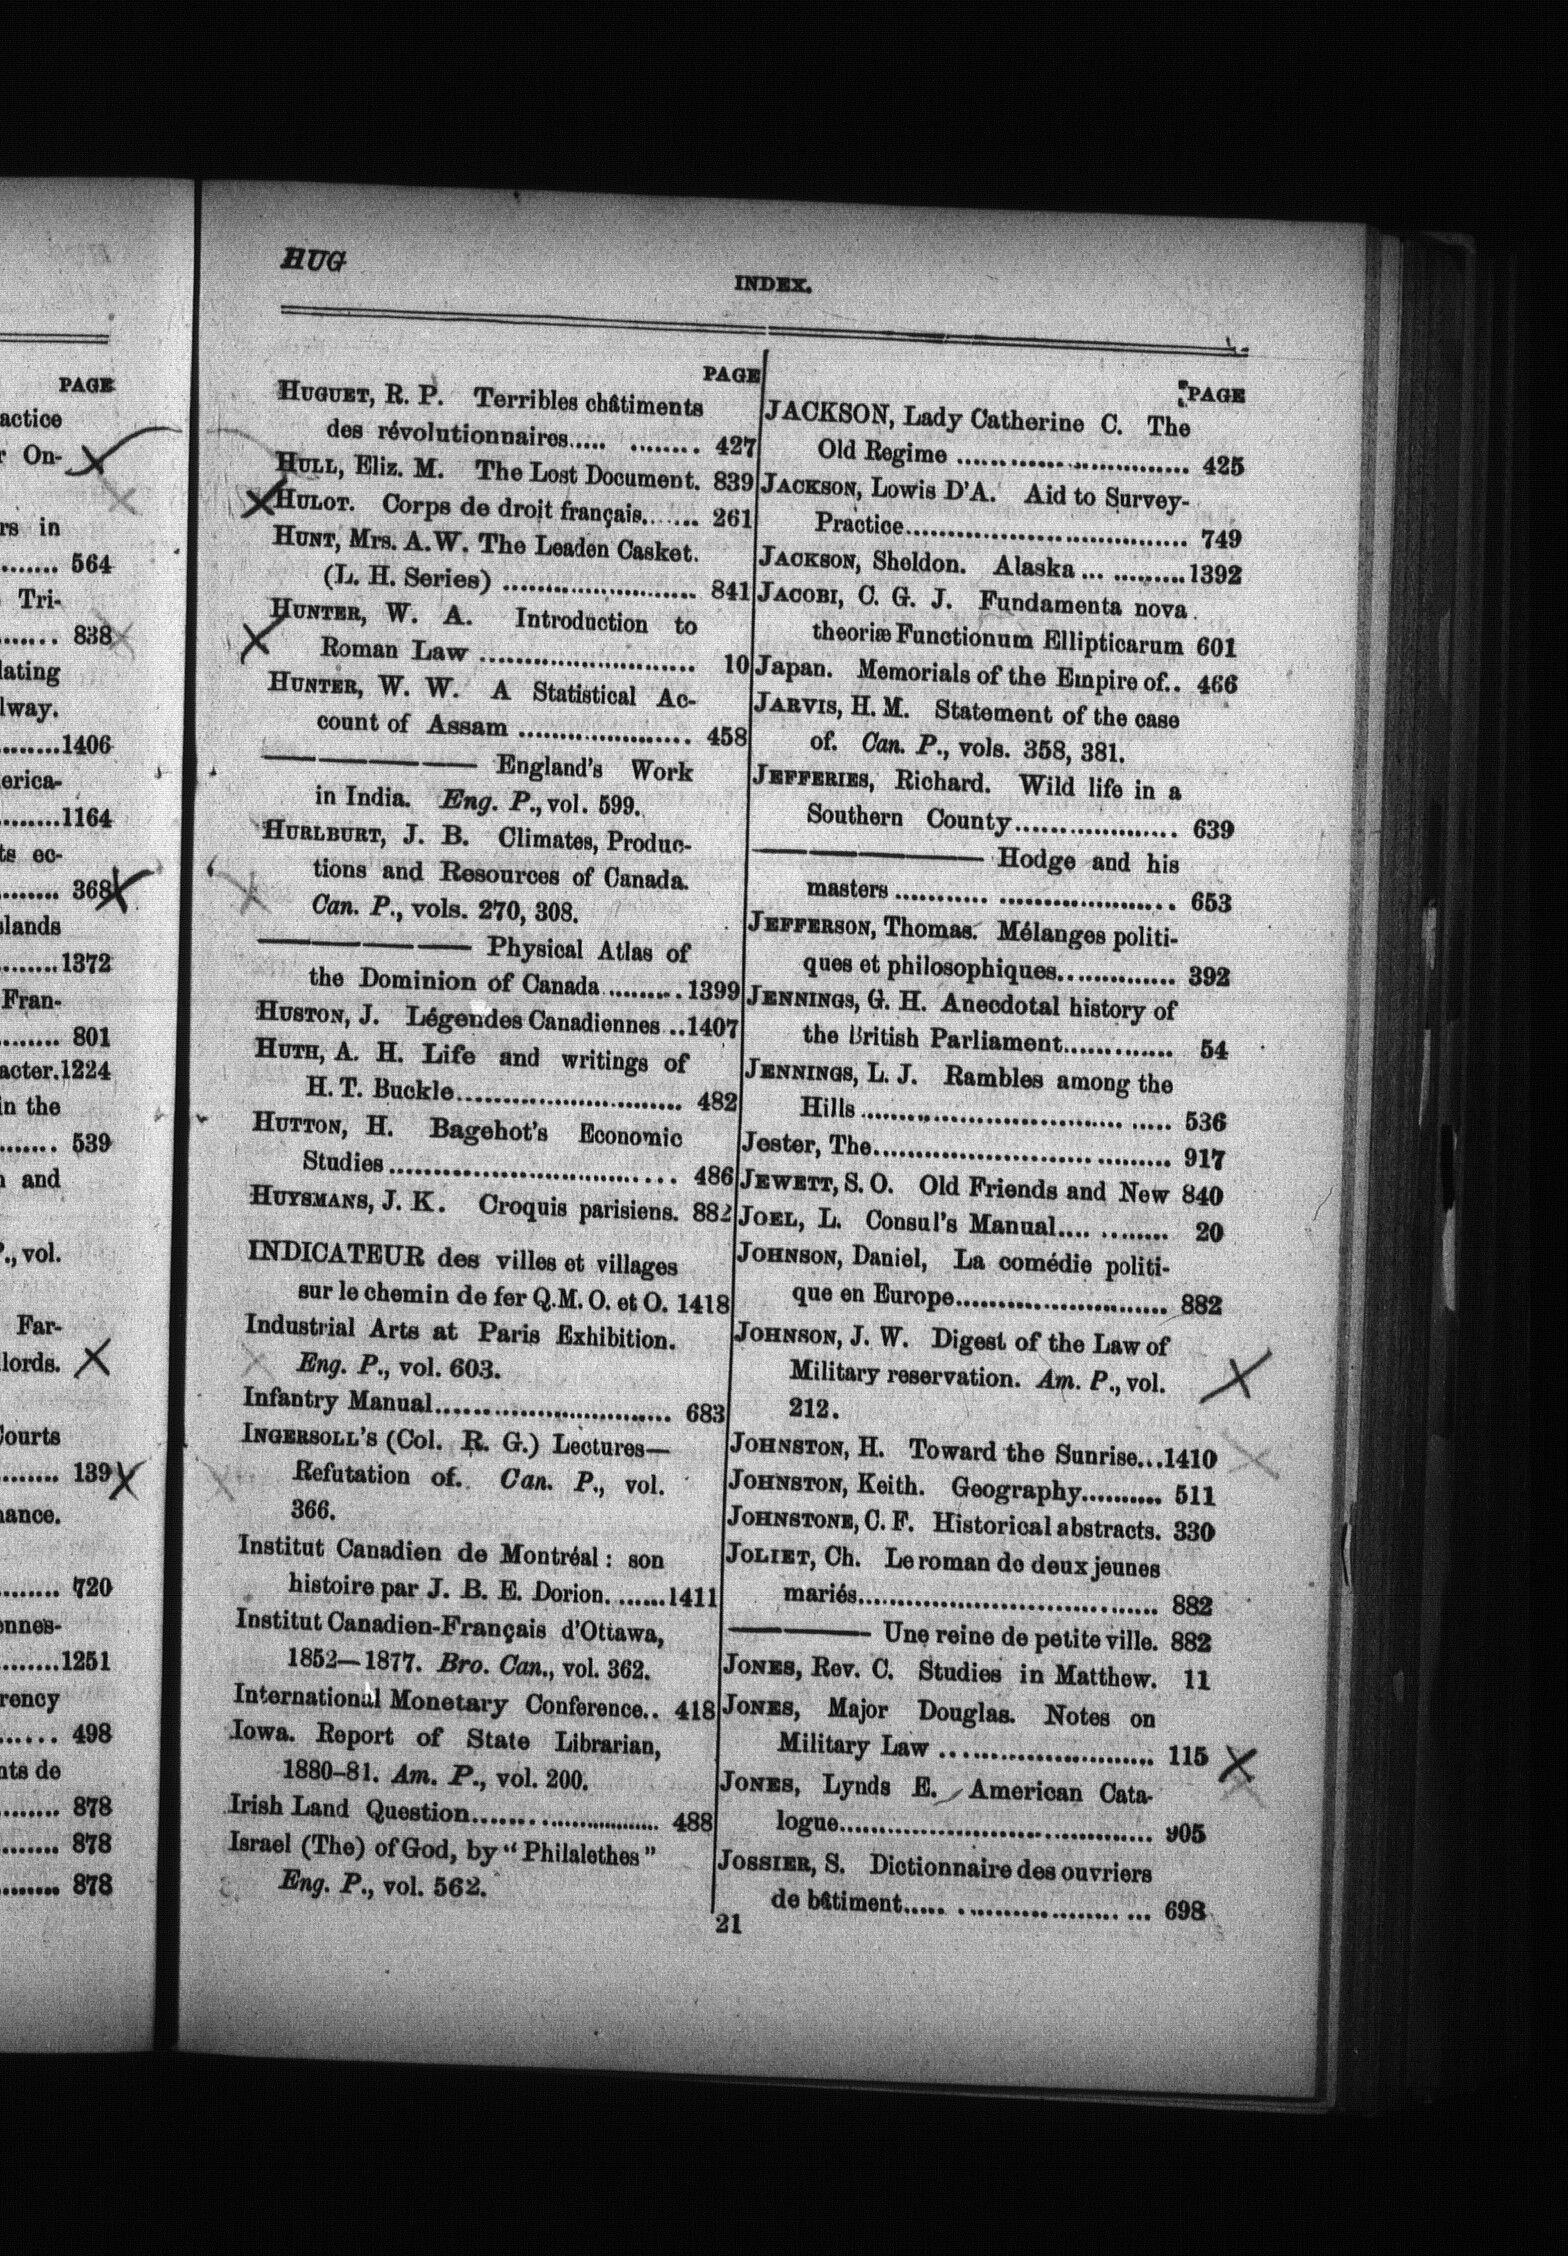 PAGE
actice
r On-
rs in
........ 564
Tri-
....... 838
lating
lway.
.........1406
erica-
.........1164
ts ec-
........ 368
slands
.........1372
Fran-
........ 801
acter.1224
in the
........ 539
n and
P., vol.
Far-
llords.
Courts
........ 139
nance.
........ 720
ennes-
.........1251
rency
....... 498
nts de
........ 878
........ 878
........ 878
HUG
INDEX.
PAGE
HUGUET, R. P. Terribles châtiments
des révolutionnaires..... ........ 427
HULL, Eliz. M. The Lost Document. 839
HULOT. Corps de droit français....... 261
HUNT, Mrs. A.W. The Leaden Casket.
(L. H. Series) ........................ 841
HUNTER, W. A. Introduction to
Roman Law ........................ 10
HUNTER, W. W. A Statistical Ac-
count of Assam ................... 458
———— England's Work
in India. Eng. P., vol. 599.
HURLBURT, J. B. Climates, Produc-
tions and Resources of Canada.
Can. P., vols. 270, 308.
———— Physical Atlas of
the Dominion of Canada .........1399
HUSTON, J. Légendes Canadiennes ..1407
HUTH, A. H. Life and writings of
H. T. Buckle......................... 482
HUTTON, H. Bagehot's Economic
Studies ................................ 486
HUYSMANS, J. K. Croquis parisiens. 882
INDICATEUR des villes et villages
sur le chemin de fer Q.M. O. et O. 1418
Industrial Arts at Paris Exhibition.
Eng. P., vol. 603.
Infantry Manual.......................... 683
INGERSOLL'S (Col. R. G.) Lectures—
Refutation of. Can. P., vol.
366.
Institut Canadien de Montréal : son
histoire par J. B. E. Dorion. .......1411
Institut Canadien-Français d'Ottawa,
1852—1877. Bro. Can., vol. 362.
International Monetary Conference.. 418
Iowa. Report of State Librarian,
1880-81. Am. P., vol. 200.
Irish Land Question...................... 488
Israel (The) of God, by "Philalethes"
Eng. P., vol. 562.
PAGE
JACKSON, Lady Catherine C. The
Old Regime .......................... 425
JACKSON, Lowis D'A. Aid to Survey-
Practice................................ 749
JACKSON, Sheldon. Alaska ... .........1392
JACOBI, C. G. J. Fundamenta nova
theoriæ Functionum Ellipticarum 601
Japan. Memorials of the Empire of.. 466
JARVIS, H. M. Statement of the case
of. Can. P., vols. 358, 381.
JEFFERIES, Richard. Wild life in a
Southern County.................. 639
———— Hodge and his
masters ........... .................... 653
JEFFERSON, Thomas. Mélanges politi-
ques et philosophiques............. 392
JENNINGS, G. H. Anecdotal history of
the British Parliament............ 54
JENNINGS, L. J. Rambles among the
Hills ............................. ..... 536
Jester, The........................ ......... 917
JEWETT, S. O. Old Friends and New 840
JOEL, L. Consul's Manual.... ........ 20
JOHNSON, Daniel, La comédie politi-
que en Europe........................ 882
JOHNSON, J. W. Digest of the Law of
Military reservation. Am. P., vol.
212.
JOHNSTON, H. Toward the Sunrise...1410
JOHNSTON, Keith. Geography.......... 511
JOHNSTONE, C. F. Historical abstracts. 330
JOLIET, Ch. Le roman de deux jeunes
mariés.................................. 882
———— Une reine de petite ville. 882
JONES, Rev. C. Studies in Matthew. 11
JONES, Major Douglas. Notes on
Military Law ........................ 115
JONES, Lynds E. American Cata-
logue................................... 905
JOSSIER, S. Dictionnaire des ouvriers
de bâtiment..... .................. ... 698
21